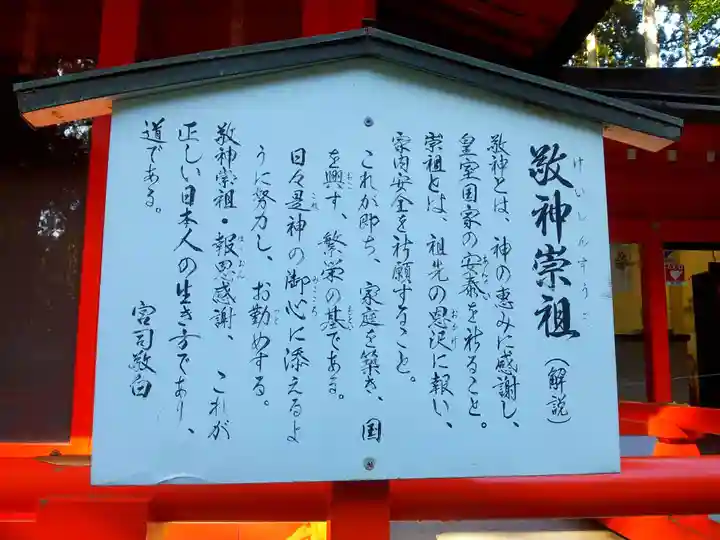 敬神崇祖(解説)
けいしんすうそ
敬神とは、神の恵みに感謝し、
皇室国家の安泰を祈ること。
あんたい
崇祖とは、祖先の恩沢に報い、
おかげ
家内安全を祈願すること。
これが即ち、家庭を築き、国
を興す、繁栄の基である。
おこ
もと
日々是神の御心に添えるよ
これ
みこころ
うに努力し、お勤めする。
つと
敬神崇祖・報恩感謝、これが
ほうおん
正しい日本人の生き方であり、
道である。
宮司敬白